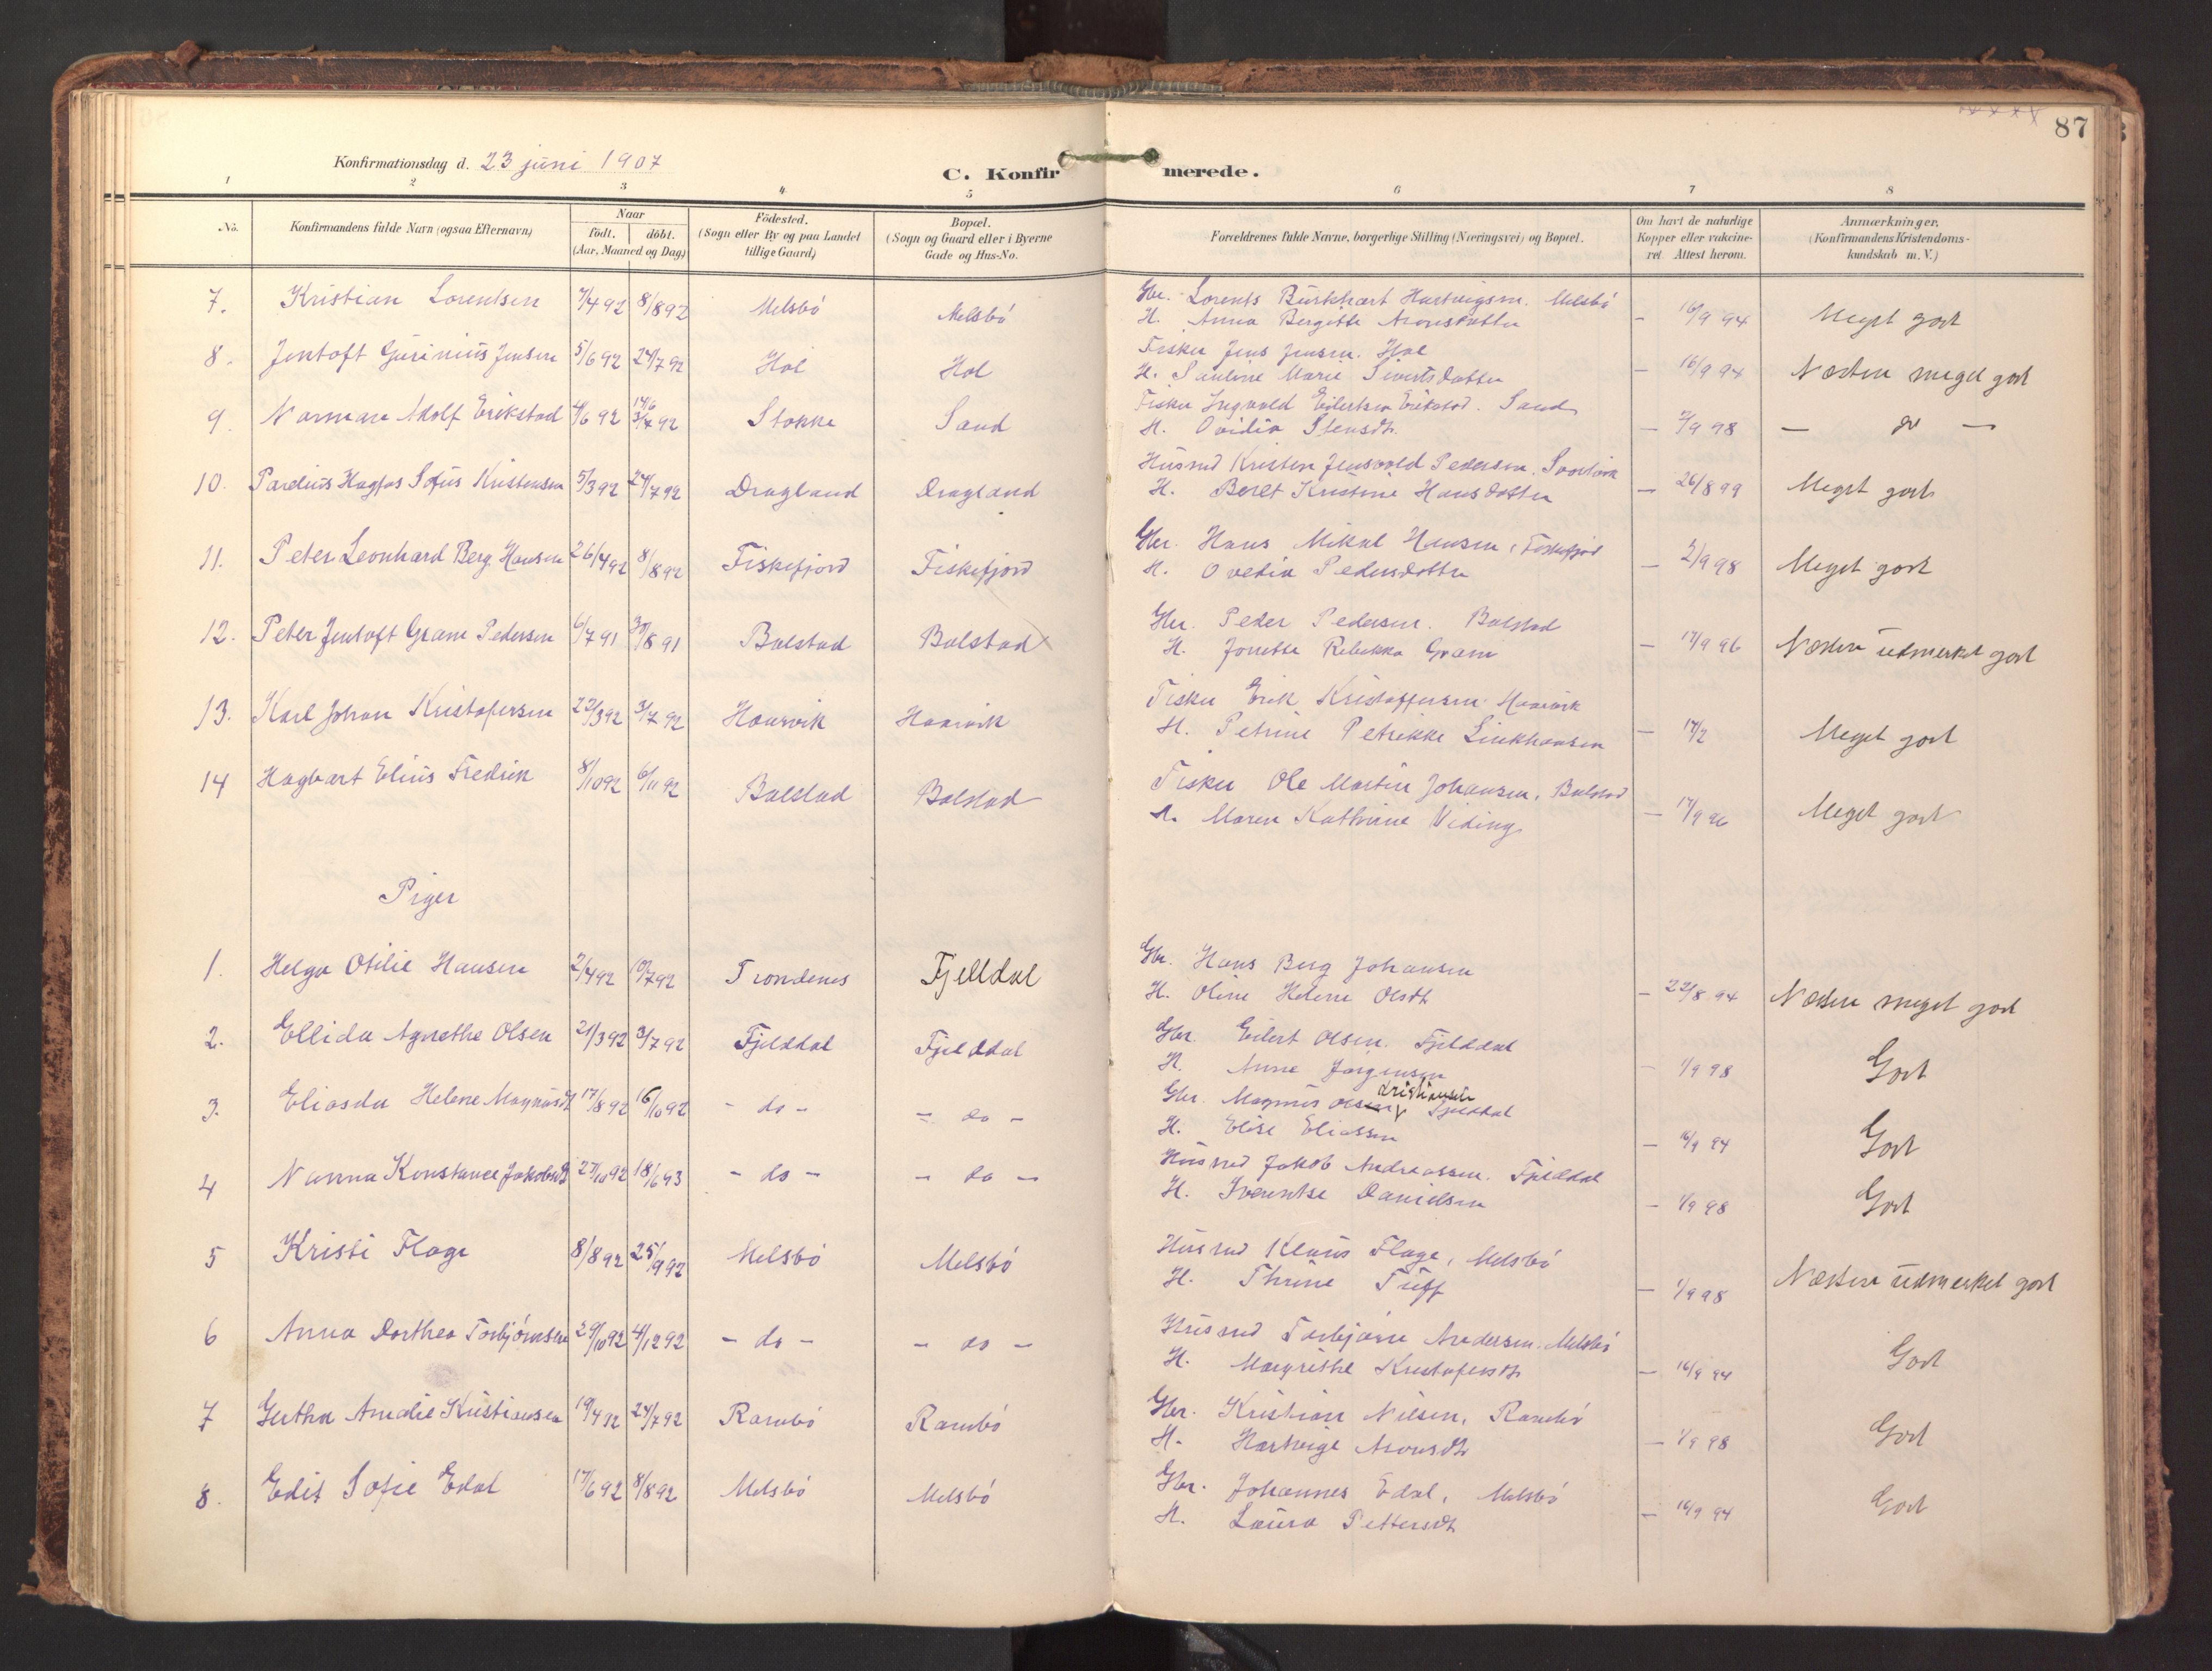 87
Konfirmationsdag d. 23 juni 1907
C. Konfirmerede.
1 2 3 4 5 6 7 8
No. Konfirmandens fulde Navn (ogsaa Efternavn) Naar Födested. Bopæl. Forældrenes fulde Navne, borgerlige Stilling (Næringsvei) og Bopæl. Om havt de naturlige Anmærkninger,
födt. döbt. (Sogn eller By og paa Landet (Sogn og Gaard eller i Byerne Kopper eller vakcine- (Konfirmandens Kristendoms-
(Aar, Maaned og Dag) tillige Gaard) Gade og Hus-No. ret. Attest herom. kundskab m. V.)
7. Kristian Lorentsen 7/4 92 8/8 92 Melsbö Melsbö Gbr. Lorents Burkhart Hartvigsen. Melsbö
H. Anna Bergitte Aronsdatter — 16/9 94 Meget godt
8. Jentoft Gurinius Jensen 5/6 92 24/7 92 Hol Hol Fisker Jens Jensen. Hol
H. Pauline Marie Sivertsdatter — 16/9 94 Næsten meget godt
9. Norman Adolf Erikstad 4/6 92 14/6 3/7 92 Stokke Sand Fisker Ingvald Edertsen Erikstad. Sand
H. Ovidia Stensdtr. — 2/9 98 — do —
10. Pareliüs Hagfas Sofus Kristensen 5/3 92 24/7 92 Dragland Dragland Husmd Kristen Jensvold Pedersen.
H. Beret Kristine Hansdatter — 26/8 99 Meget godt
11. Peter Leonhard Berg Hansen 26/4 92 8/8 92 Fiskefjord Fiskefjord Gbr. Hans Mikal Hansen, Fiskefjord
H. Ovedia Pedersdatter — 2/9 98 Meget godt
12. Peter Jentoft Gram Pedersen 6/7 91 30/8 91 Balstad Balstad Gbr. Peder Pedersen. Balstad
H. Jonetta Rebekka Gram — 17/9 96 Næsten udmerket godt
13. Karl Johan Kristofersen 22/3 92 3/7 92 Haarvik Haarvik Fisker Erik Kristoffersen Haarvik
H. Petrine Petrikke Linkhausen — 17/2 Meget godt
14 Hagbart Elius Fredrik 8/10 92 6/11 92 Balstad Balstad Fisker Ole Martin Johansen, Balstad
H. Maren Kathrine Viding — 17/9 96 Meget godt
Piger
1. Helga Otilie Hansen 2/4 92 10/7 92 Trondenes Fjelldal Gbr. Hans Berg Johansen
H. Oline Helene Olsdtr — 22/8 94 Næsten meget godt
2. Ellida Agnethe Olsen 21/3 92 3/7 92 Fjelddal Fjelddal Gbr. Edert Olsen. Fjelddal
H. Anne Jørgensen — 1/9 98 Godt
Kristiansen
3. Eliasda Helene Magnusdt 17/8 92 16/10 92 - do - - do - Gbr. Magnus Olsen Fjelddal
H. Elise Eliassen — 16/9 94 Godt
4 Nanna Konstance Jakobsdt 27/10 92 18/6 93 - do - - do - Husmd Jakob Andreassen. Fjelddal
H. Danielsen — 1/9 98 Godt
5 Kristi Flage 8/8 92 25/9 92 Melsbö Melsbö Husmd Klaus Flage, Melsbö
H. Thrine Tuff — 1/9 98 Næsten udmerket godt
6 Anna Dorthea Torbjörnsen 29/10 92 4/12 92 - do - - do - Husmd Torbjørn Andersen. Melsbö
H. Margrethe Kristofersdtr — 16/9 94 Godt
7 Gertha Amalie Kristiansen 19/4 92 24/7 92 Rambö Rambö Gbr. Kristian Nilsen, Rambö
H. Hartvige Aronsdtr — 1/9 98 Godt
8. Edit Sofie Edal 17/6 92 8/8 92 Melsbö Melsbö Gbr. Johannes Edal, Melsbö
H. Laura Pettersdtr — 16/9 94 Godt